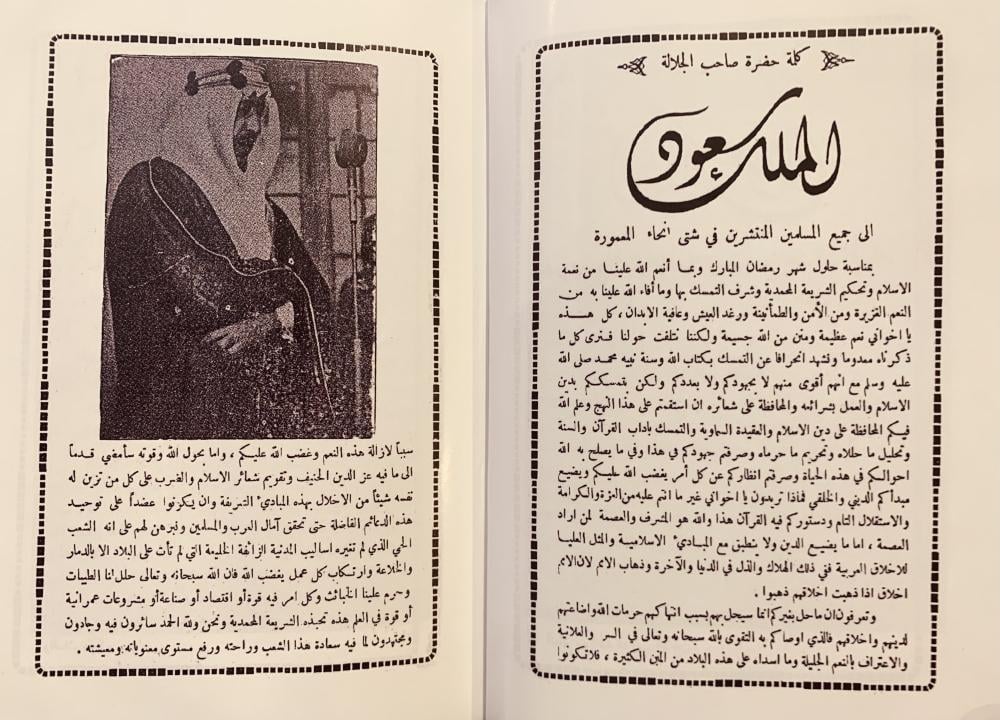 كلمة حضرة صاحب الجلالة
الملك سعود
الى جميع المسلمين المنتشرين في شتى انحاء المعمورة
بمناسبة حلول شهر رمضان المبارك وبما أنعم الله علينا من نعمة
الاسلام وتحكيم الشريعة المحمدية وشرف التمسك بها وما أفاء الله علينا به من
النعم الغزيرة ومن الأمن والطمأنينة ورغد العيش وعافية الابدان ، كل هذه
يا اخواني نعم عظيمة ومنن من الله جسيمة ولكننا نتلفت حولنا فنرى كل ما
ذكرناه معدوما ونشهد انحرافا عن التمسك بكتاب الله وسنة نبيه محمد صلى الله
عليه وسلم مع انهم أقوى منهم لا بجهودكم ولا بعددكم ولكن بتمسككم بدين
الاسلام والعمل بشرائعه والمحافظة على شعائره ان استقمتم على هذا النهج وعلم الله
فيكم المحافظة على دين الاسلام والعقيدة السماوية والتمسك باداب القرآن والسنة
وتحليل ما حلاه وتحريم ما حرماه وصرفتم جهودكم في هذا وفي ما يصلح به الله
احوالكم في هذه الحياة وصرفتم انظاركم عن كل أمر يغضب الله عليكم ويضيع
مبدأكم الديني والخلقي فماذا تريدون يا اخواني غير ما انتم عليه من العزة والكرامة
والاستقلال التام ودستوركم فيه القرآن هذا والله هو الشرف والعصمة لمن اراد
العصمة ، اما ما يضيع الدين ولا ينطبق مع المبادئ الاسلامية والمثل العليا
للاخلاق العربية ففي ذلك الهلاك والذل في الدنيا والآخرة وذهاب الامم لان الامم
اخلاق اذا ذهبت اخلاقهم ذهبوا .
وتعرفون ان ماحل بغيركم انما سيجل بهم بسبب انتهاكهم حرمات الله واضاعتهم
لدينهم واخلاقهم فالذي اوصاكم به التقوى بالله سبحانه وتعالى في السر والعلانية
والاعتراف بالنعم الجليلة وما اسداه على هذه البلاد من المنن الكثيرة ، فلا تكونوا
سبباً لازالة هذه النعم وغضب الله عليكم ، واما بحول الله وقوته سأمضي قدماً
الى ما فيه عز الدين الحنيف وتقويم شعائر الاسلام والضرب على كل من تزين له
نفسه شيئاً من الاخلال بهذه المبادئ الشريفة وان يكونوا عضداً على توحيد
هذه الدعائم الفاضلة حتى تتحقق آمال العرب والمسلمين ونبرهن لهم على انه الشعب
الحي الذي لم تغيره اساليب المدنية الزائفة الخليعة التي لم تأت على البلاد الا بالدمار
والخلاعة وارتكاب كل عمل يغضب الله فان الله سبحانه وتعالى حلل لنا الطيبات
وحرم علينا الخبائث وكل امر فيه قوة أو اقتصاد أو صناعة أو مشروعات عمرانية
أو قوة في العلم هذه تحبذه الشريعة المحمدية ونحن ولله الحمد سائرون فيه وجادون
ومجتهدون لما فيه سعادة هذا الشعب وراحته ورفع مستوى معنوياته ومعيشته .